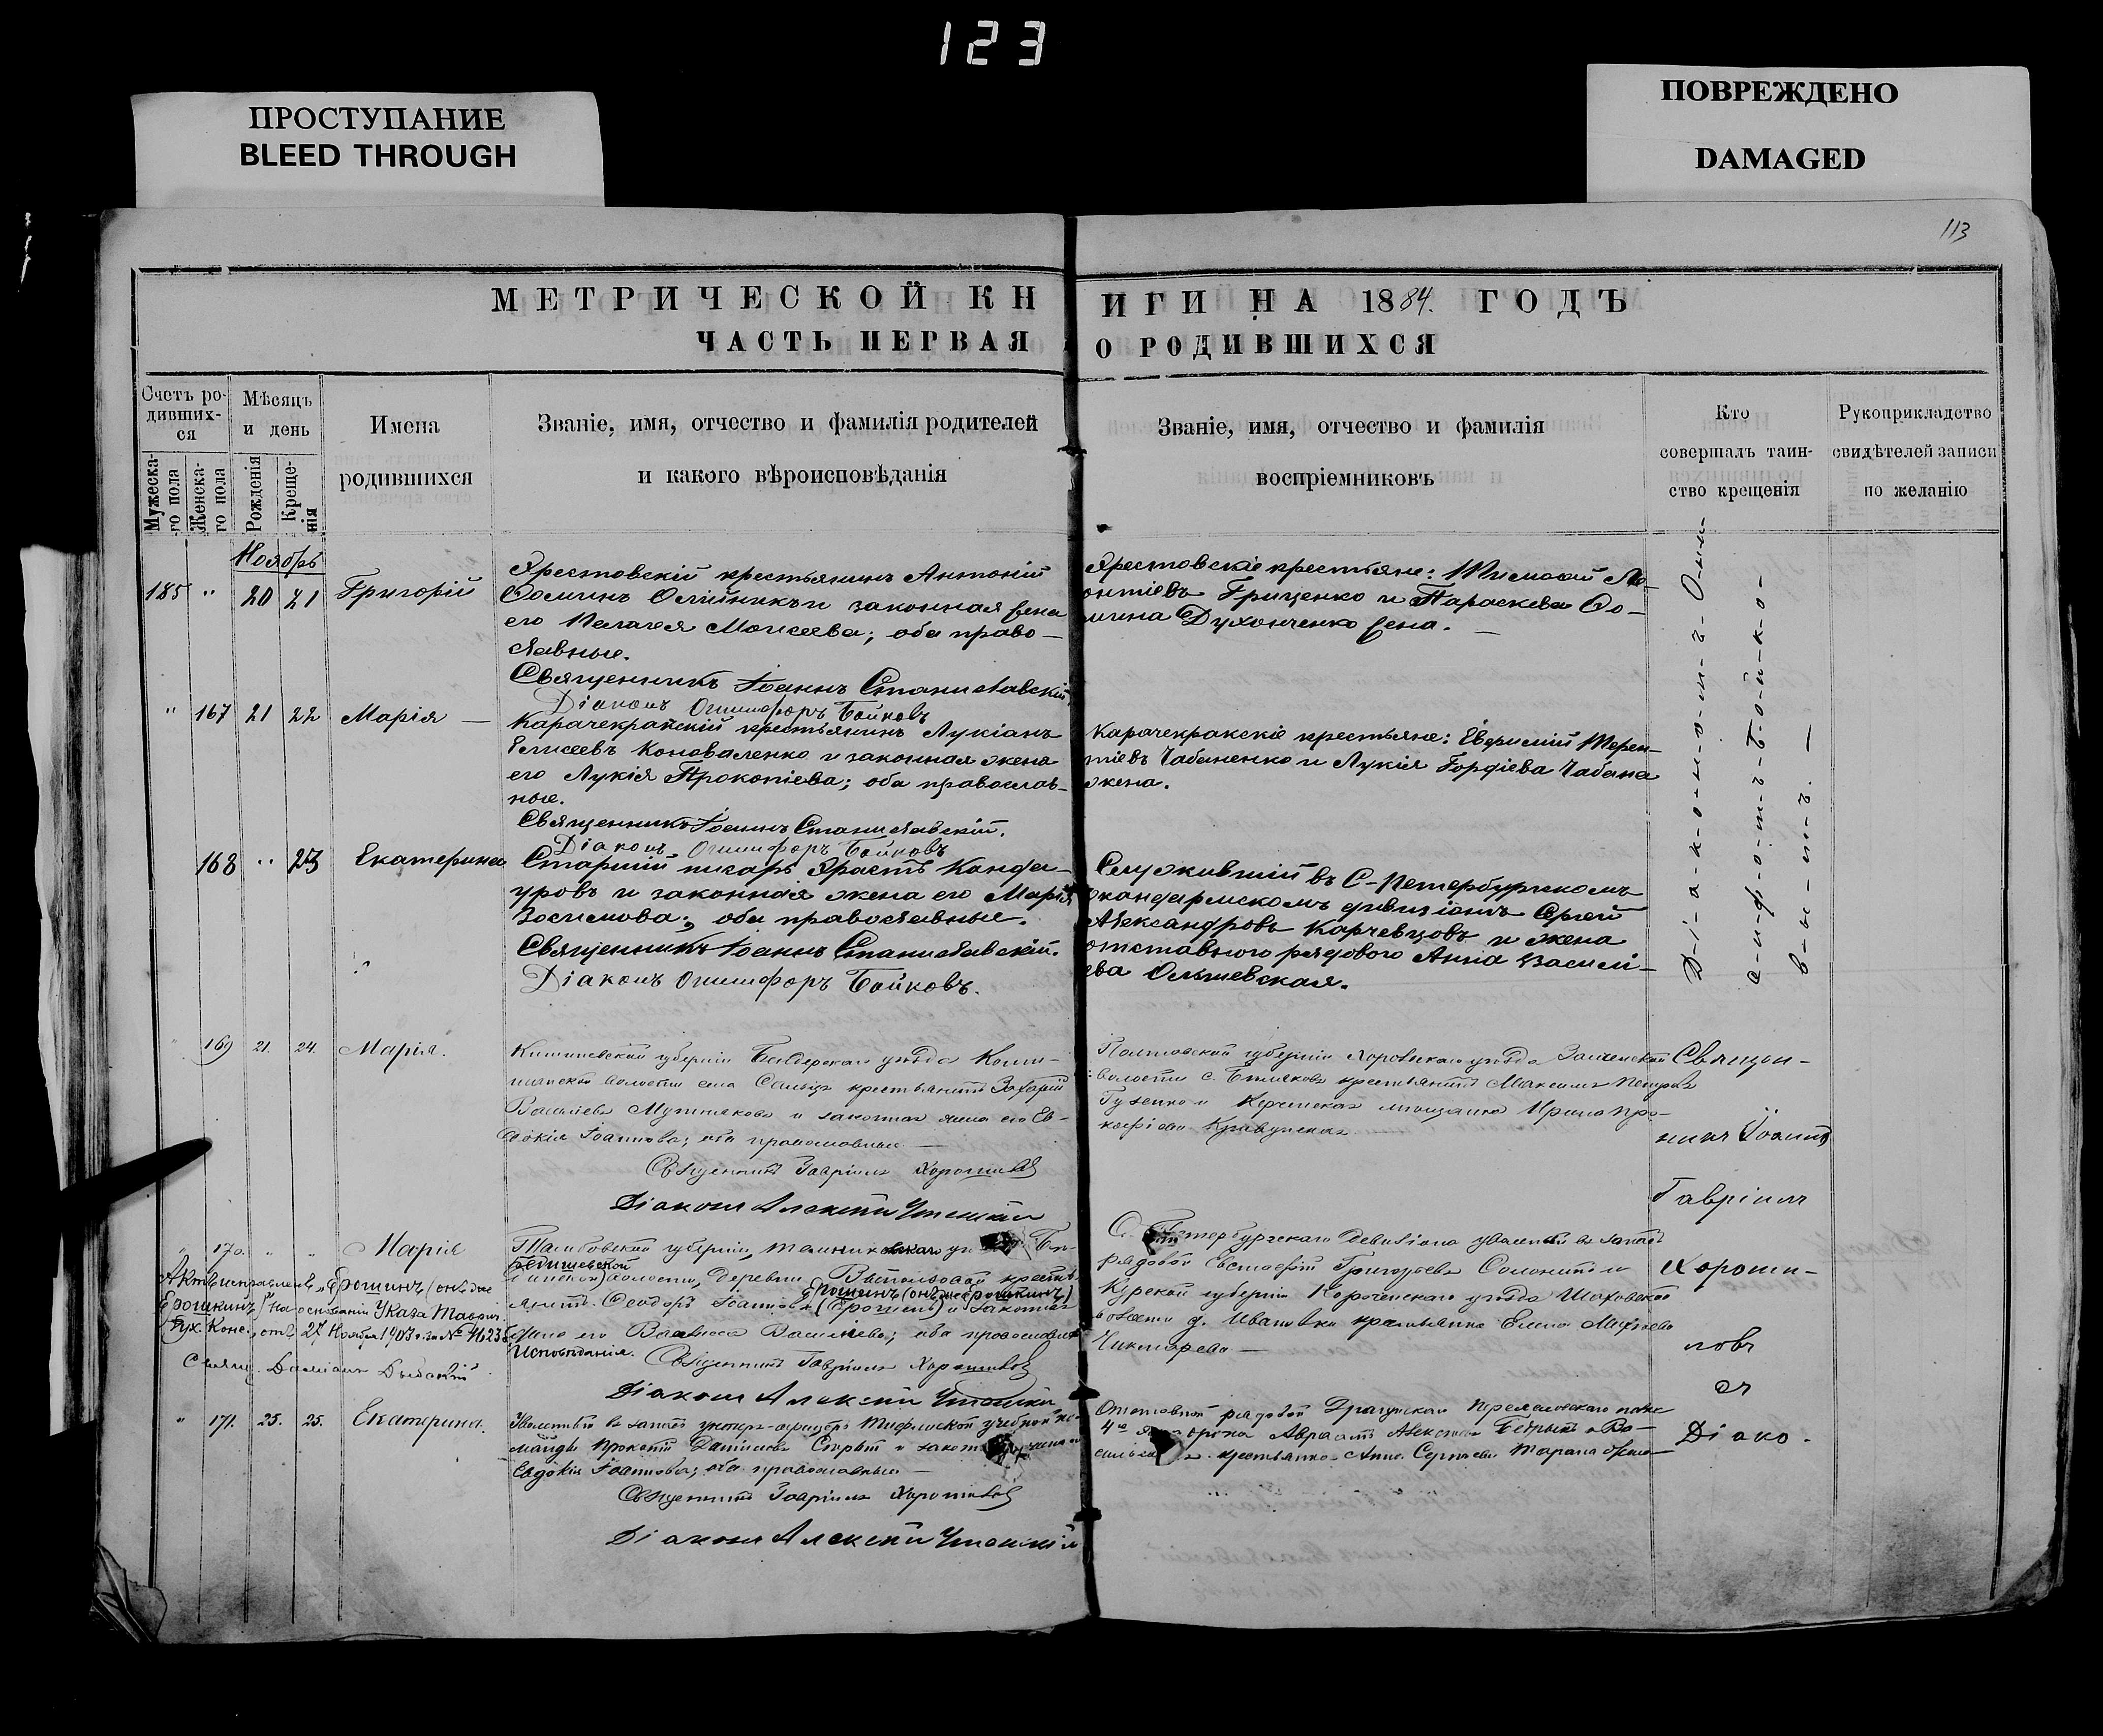 123
ПРОСТУПАНИЕ
BLEED THROUGH
ПОВРЕЖДЕНО
DAMAGED
113
МЕТРИЧЕСКОЙ КНИГИ НА 1884. ГОДЪ
ЧАСТЬ ПЕРВАЯ О РОДИВШИХСЯ
Счетъ ро-
дивших-
ся
Мужеска-
го пола
Женска-
го пола
Мѣсяцъ
и день
Рожденія
Креще-
нія
Имена
родившихся
Званіе, имя, отчество и фамилія родителей
и какого вѣроисповѣданія
Званіе, имя, отчество и фамилія
воспріемниковъ
Кто
совершалъ таин-
ство крещенія
Рукоприкладство
свидѣтелей записи
по желанію
Ноябрь
185 " 20 21 Григорій
Ярестовскій крестьянинъ Антоній
Ѳоминъ Олійникъ и законная жена
его Пелагея Моисеева; оба право-
славные.
Священникъ Іоаннъ Станиславскій
Діаконъ Онисифоръ Бойковъ
Ярестовскіе крестьяне: Тимоѳей Ле-
онтіевъ Гриценко и Параскева Ѳо-
мина Духонченко жена.
" 167 21 22 Марія
Карачекракскій крестьянинъ Лукіанъ
Елисеевъ Коноваленко и законная жена
его Лукія Прокопіева; оба православ-
ные.
Священникъ Іоаннъ Станиславскій.
Діаконъ Онисифоръ Бойковъ
Карачекракскіе крестьяне: Евѳимій Терен-
тіевъ Чабаненко и Лукія Гордіева Чабана
жена.
168 " 23 Екатерина
Старшій писарь Ярастъ Канда-
уровъ и законная жена его Марія
Зосимова; оба православные.
Священникъ Іоаннъ Станиславскій.
Діаконъ Онисифоръ Бойковъ.
Служившій въ С-Петербургскомъ
жандармскомъ дивизіонѣ Сергей
Александровъ Карчевцовъ и жена
отставного рядового Анна Василі-
ева Ольшевская.
Д-і-а-к-о-н-ъ О-ни-
с-и-ф-о-р-ъ Б-о-й-к-о-
в-ъ.
169 21. 24. Марія.
Кишиневской губерніи Бендерскаго уѣзда
волости села крестьянинъ Захарій
Василіевъ и законная жена его Ев-
докія Іоаннова; оба православные
Священникъ Гавріилъ Хорошиловъ
Діаконъ Алексій
Полтавской губерніи Хорольскаго уѣзда
волости с. крестьянинъ Максимъ Петровъ
Гузенко и Керченская мѣщанка Ирина Про-
кофіева
Священ-
никъ Іоаннъ
Гавріилъ
Хороши-
ловъ
съ
Діако-
" 170. " " Марія
Тамбовской губерніи, Темниковскаго
волости, деревни крестья-
янинъ Ѳеодоръ Іоанновъ Ерошинъ (онъ же Ерошкинъ) и законная
жена его Васса Василіева; оба православнаго
Исповѣданія.
Священникъ Гавріилъ Хорошиловъ
Діаконъ Алексій
Актъ исправленъ „Ерошинъ" (онъ же
Ерошкинъ) на основаніи Указа Таврич.
Дух. Конс., отъ 27 Ноября 1903 г. за № 46238
Свящ. Даміанъ
С. Петербургскаго дивизіона уволенный въ запасъ
рядовой Евстафій Григорьевъ и
Курской губерніи Корочанскаго уѣзда Шаховской
волости д. Ивановки крестьянка Елена
" 171. 25. 25. Екатерина.
Уволенный въ запасъ унтеръ-офицеръ Тифлисской учебной ко-
манды Прокопій Даниловъ и законная жена
Евдокія Іоаннова; оба православные
Священникъ Гавріилъ Хорошиловъ
Діаконъ Алексій
Отставной рядовой Драгунскаго Переяславскаго полка
4го Авраамъ Алексіевъ
крестьянка Анна Сергіева